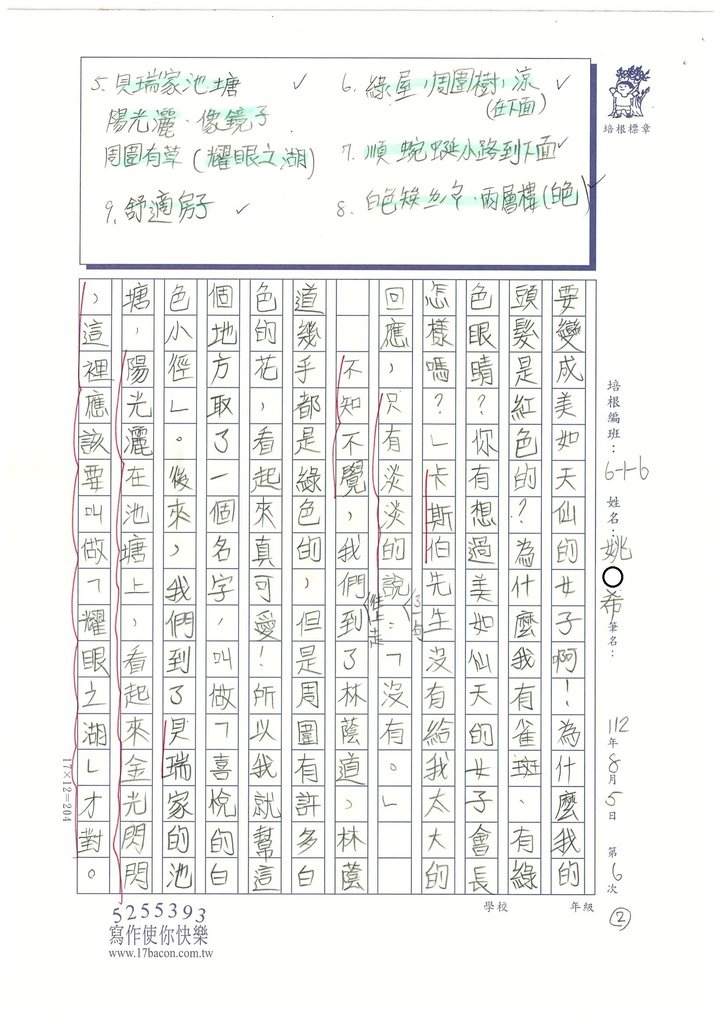 5. 貝瑞家池塘 ✓
陽光灑、像鏡子
周圍有草(耀眼之湖)
9. 舒適房子 ✓
6. 綠屋,周圍樹,涼 ✓
(在下面)
7. 順蜿蜒小路到下面 ✓
8. 白色矮ㄌㄢˊ、兩層樓(白色) ✓
培根標章
培根編班:6-1-6 姓名:姚○希 筆名:
112年8月5日 第6次
學校 年級
②
要變成美如天仙的女子啊!為什麼我的
頭髮是紅色的?為什麼我有雀斑、有綠
色眼睛?你有想過美如仙天的女子會長
怎樣嗎?」卡斯伯先生沒有給我太大的
回應,只有淡淡的說:「沒有。」
不知不覺,我們到了林蔭道,林蔭
道幾乎都是綠色的,但是周圍有許多白
色的花,看起來真可愛!所以我就幫這
個地方取了一個名字,叫做「喜悅的白
色小徑」。後來,我們到了貝瑞家的池
塘,陽光灑在池塘上,看起來金光閃閃
,這裡應該要叫做「耀眼之湖」才對。
17×12=204
5255393
寫作使你快樂
www.17bacon.com.tw